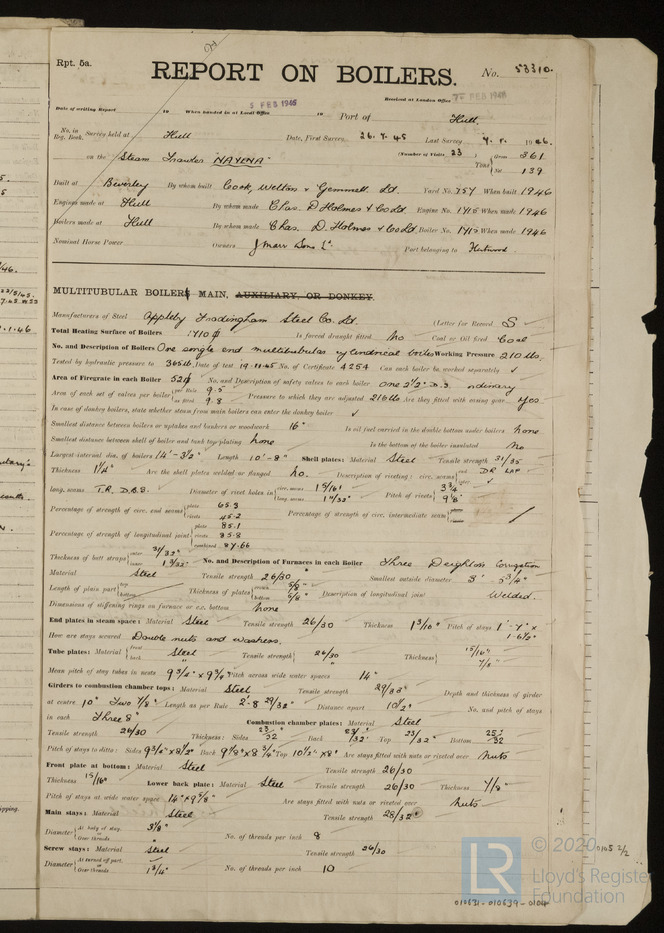 Rpt. 5a.
REPORT ON BOILERS.
No. 53310.
5 FEB 1946
FEB 1946
Date of writing Report 19 When handed in at Local Office 19 Received at London Office
Port of Hull.
No. in Reg. Book. Survey held at Hull Date, First Survey 26.7.45 Last Survey 1946.
on the Steam Trawler "NAVENA" (Number of Visits 23) Tons Gross 361 Net 139
Built at Beverley By whom built Cook, Welton & Gemmell. Ltd. Yard No. 757 When built 1946
Engines made at Hull By whom made Chas. D. Holmes & Co Ltd Engine No. 1715 When made 1946
Boilers made at Hull By whom made Chas. D. Holmes & Co Ltd Boiler No. 1715 When made 1946
Nominal Horse Power Owners J Marr & Sons Ld. Port belonging to Fleetwood
MULTITUBULAR BOILERS MAIN, AUXILIARY, OR DONKEY.
Manufacturers of Steel Appleby Frodingham Steel Co. Ltd. (Letter for Record S
Total Heating Surface of Boilers 1710 Is forced draught fitted No Coal or Oil fired Coal
No. and Description of Boilers One single end multitubular cylindrical boiler Working Pressure 210 lbs.
Tested by hydraulic pressure to 365 lb. Date of test 19.11.45 No. of Certificate 4254 Can each boiler be worked separately ✓
Area of Firegrate in each Boiler 52 No. and Description of safety valves to each boiler one 2½" D.S. ordinary
Area of each set of valves per boiler per Rule 9.5 as fitted 9.8 Pressure to which they are adjusted 216 lbs Are they fitted with easing gear yes
In case of donkey boilers, state whether steam from main boilers can enter the donkey boiler ✓
Smallest distance between boilers or uptakes and bunkers or woodwork 16" Is oil fuel carried in the double bottom under boilers none
Smallest distance between shell of boiler and tank top plating none Is the bottom of the boiler insulated No
Largest internal dia. of boilers 14'-3½" Length 10'-8" Shell plates: Material Steel Tensile strength 31/35
Thickness 1¼" Are the shell plates welded or flanged No. Description of riveting: circ. seams end DR LAP inter. ✓
long. seams T.R. D.B.S. Diameter of rivet holes in circ. seams long. seams Pitch of rivets 3¾ 9⅛
Percentage of strength of circ. end seams plate 65.3 rivets 45.2 Percentage of strength of circ. intermediate seam plate rivets
Percentage of strength of longitudinal joint plate 85.1 rivets 85.8 combined 87.66
Thickness of butt straps outer 31/32" inner 1 3/32" No. and Description of Furnaces in each Boiler Three Deighton Corrugation
Material Steel Tensile strength 26/30 Smallest outside diameter 3' 5¾"
Length of plain part top bottom Thickness of plates crown 5/8" bottom 5/8" Description of longitudinal joint Welded.
Dimensions of stiffening rings on furnace or c.c. bottom None
End plates in steam space: Material Steel Tensile strength 26/30 Thickness 1 3/16" Pitch of stays 1'-7" x 1-6½"
How are stays secured Double nuts and washers.
Tube plates: Material front back Steel Tensile strength 26/30 Thickness 15/16" 7/8"
Mean pitch of stay tubes in nests 9¾" x 9¾" Pitch across wide water spaces 14"
Girders to combustion chamber tops: Material Steel Tensile strength 29/33 Depth and thickness of girder
at centre 10" Two 7/8" Length as per Rule 2'-8 29/32" Distance apart 10½" No. and pitch of stays
in each Three 8" Combustion chamber plates: Material Steel
Tensile strength 26/30 Thickness: Sides 23/32 Back 23/32" Top 23/32" Bottom 25/32
Pitch of stays to ditto: Sides 9¾" x 8½" Back 9⅞" x 8¾" Top 10½" x 8" Are stays fitted with nuts or riveted over Nuts
Front plate at bottom: Material Steel Tensile strength 26/30
Thickness 15/16" Lower back plate: Material Steel Tensile strength 26/30 Thickness 7/8"
Pitch of stays at wide water space 14" x 9⅝" Are stays fitted with nuts or riveted over Nuts
Main stays: Material Steel Tensile strength 28/32
Diameter At body of stay, or Over threads 3⅛" No. of threads per inch 8
Screw stays: Material Steel Tensile strength 26/30
Diameter At turned off part, or Over threads 1¾" No. of threads per inch 10
© 2020
Lloyd's Register
Foundation
LR
010631-010639-0104